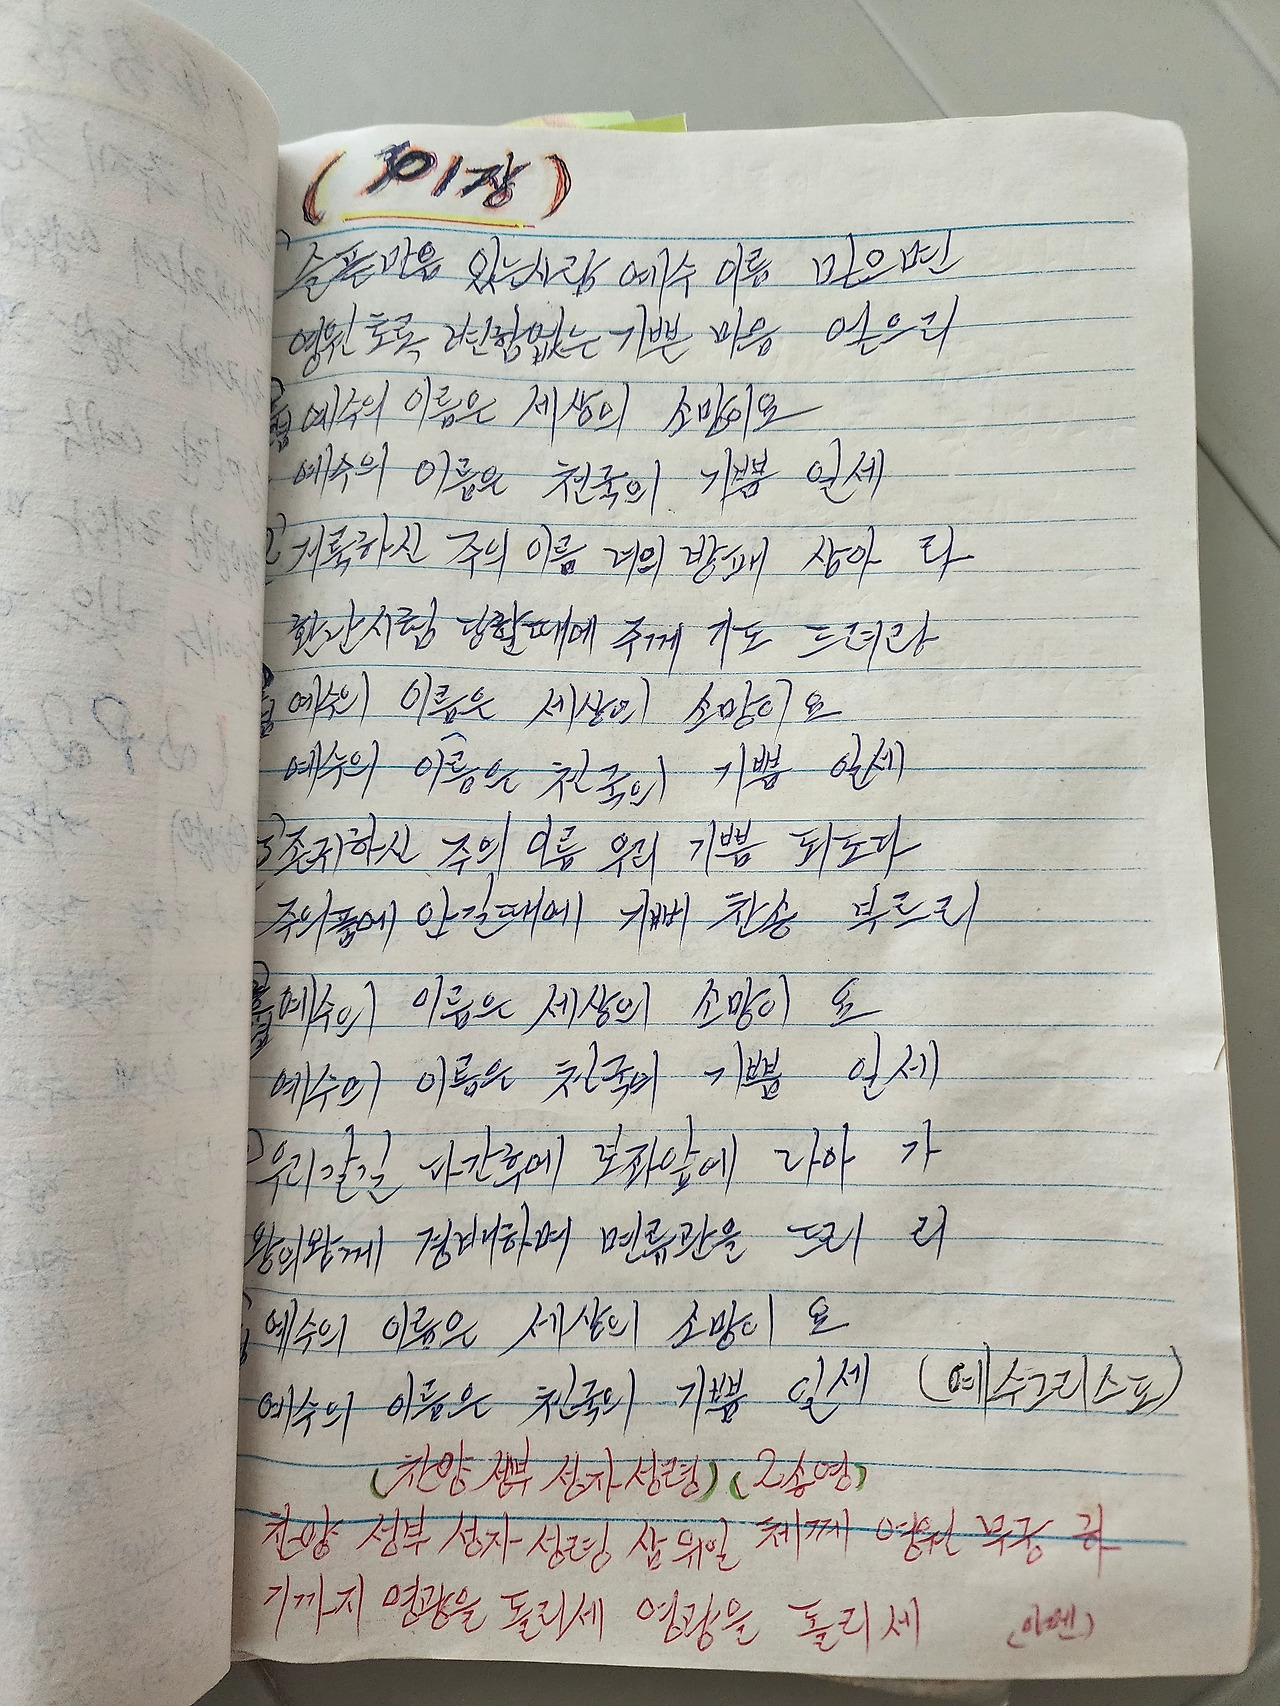 (301장)
슬픈마음 있는사람 예수 이름 믿으면
영원토록 변함없는 기쁜 마음 얻으리
예수의 이름은 세상의 소망이요
예수의 이름은 천국의 기쁨 일세
2) 거룩하신 주의 이름 너의 방패 삼아 라
환난시험 당할때에 주께 기도 드려라
예수의 이름은 세상에 소망이요
예수의 이름은 천국의 기쁨 일세
3) 존귀하신 주의 이름 우리 기쁨 되도다
주의품에 안길때에 기뻐 찬송 부르리
예수의 이름은 세상의 소망이 요
예수의 이름은 천국의 기쁨 일세
우리갈길 다간후에 보좌앞에 나아 가
왕의왕께 경배하며 면류관을 드리 리
예수의 이름은 세상의 소망이 요
예수의 이름은 천국의 기쁨 일세 (예수그리스도)
(찬양 성부 성자 성령) (2송영)
찬양 성부 성자 성령 삼위일 체께 영원 무궁 하
기까지 영광을 돌리세 영광을 돌리세 (아멘)